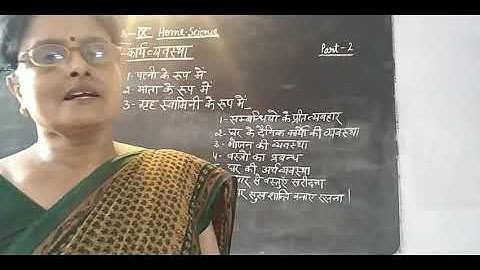 IX Home-Science
कार्य व्यवस्था
Part-2
1- पत्नी के रूप में
2- माता के रूप में
3- गृह स्वामिनी के रूप में
1- सम्बन्धियों के प्रति व्यवहार
2- घर के दैनिक कार्यों की व्यवस्था
3- भोजन की व्यवस्था
4- वस्त्रों का प्रबन्ध
घर की अर्थव्यवस्था
से वस्तुएं खरीदना
सुख शान्ति बनाए रखना।